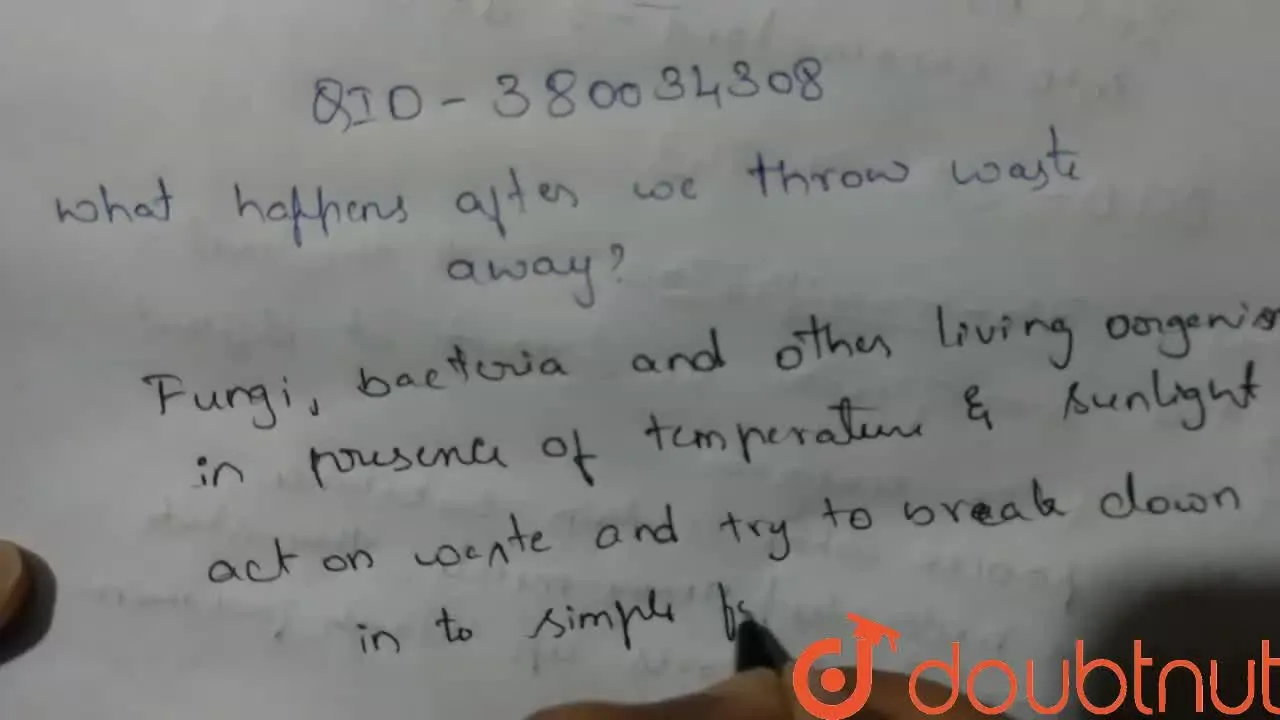 QID - 380034308
what happens after we throw waste
away?
Fungi, bacteria and other living
in presence of temperature & sunlight
act on waste and try to break down
in to simple
doubtnut